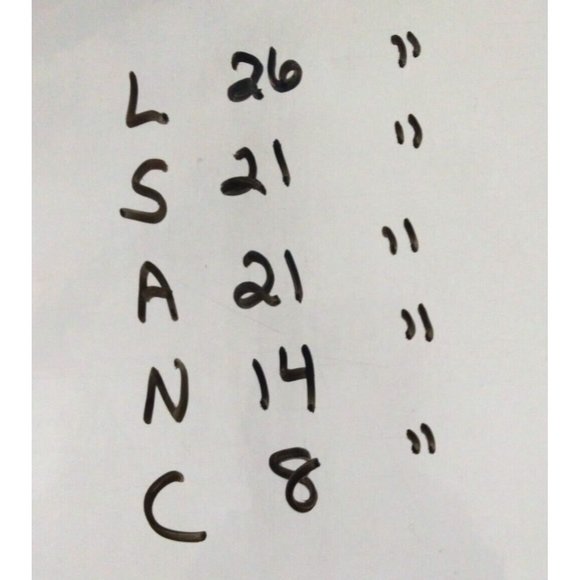 L 26 "
S 21 "
A 21 "
N 14 "
C 8 "